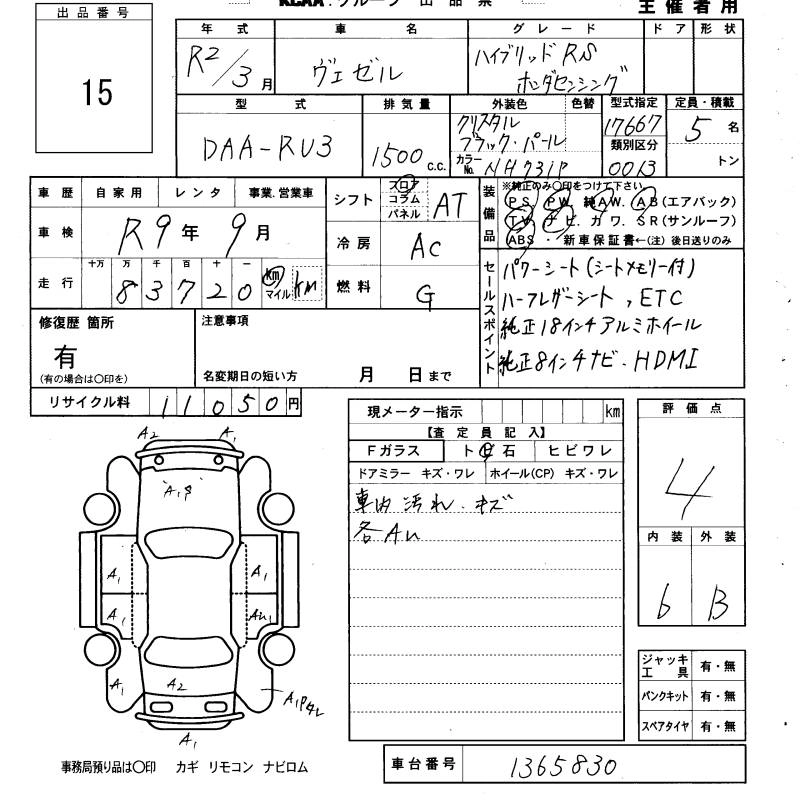 KCAA.グループ 出品票
主催者用
出品番号
15
年式 車名 グレード ドア 形状
R2/3月 ヴェゼル ハイブリッドRS
ホンダセンシング
型式 排気量 外装色 色替 型式指定 定員・積載
DAA-RU3 1500 C.C. クリスタル
ブラック・パール
カラーNo. NH731P
17667
類別区分
0013
5名
トン
車歴 自家用 レンタ 事業.営業車
車検 R9年9月
走行 十万 万 千 百 十 一
83720 km マイル km
シフト フロア コラム パネル AT
冷房 AC
燃料 G
装備品
※純正のみ〇印をつけて下さい
PS. PW. 純AW. AB(エアバック)
TV ナビ. カワ. SR(サンルーフ)
ABS ・ 新車保証書←(注)後日送りのみ
セールスポイント
パワーシート(シートメモリー付)
ハーフレザーシート, ETC
純正18インチアルミホイール
純正8インチナビ・HDMI
修復歴 箇所
有
(有の場合は〇印を)
注意事項
名変期日の短い方 月 日まで
リサイクル料 11050円
A2 A1
A1P
A1 A1
A1 AU1
A1 A2
A1
現メーター指示 km
【査定員記入】
Fガラス ト ビ 石 ヒビワレ
ドアミラー キズ・ワレ ホイール(CP) キズ・ワレ
車内汚れ・キズ
各AU
評価点
4
内装 外装
6 B
ジャッキ
工具 有・無
パンクキット 有・無
スペアタイヤ 有・無
事務局預り品は〇印 カギ リモコン ナビロム
車台番号 1365830